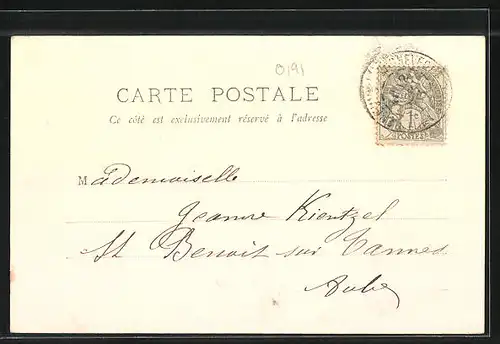 0191
CARTE POSTALE
Ce côté est exclusivement réservé à l'adresse
Mademoiselle
Jeanne Kientzel
St Benoit sur Vannes
Aube
1c
POSTES